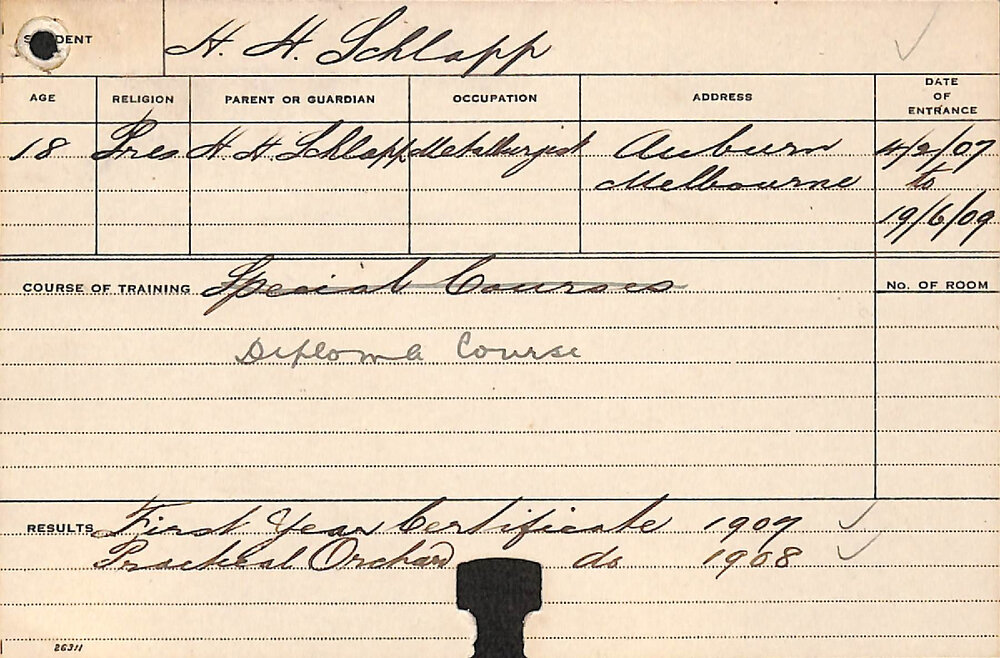 STUDENT H. H. Schlapp
AGE RELIGION PARENT OR GUARDIAN OCCUPATION ADDRESS DATE OF ENTRANCE
18 Pres H H Schlapp Metallurgist Auburn 4/2/07
Melbourne to
19/6/09
COURSE OF TRAINING Special Courses No. OF ROOM
Diploma Course
RESULTS First Year Certificate 1907
Practical Orchard do 1908
26311